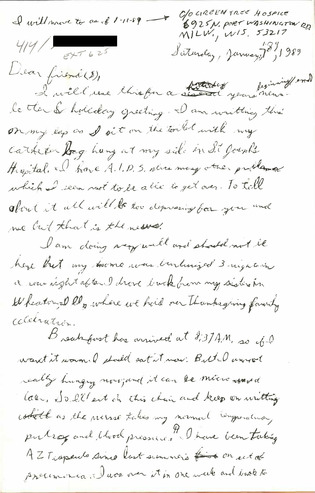 I will move to as of 1-11-89 → C/O GREENTREE HOSPICE
6925 N. PORT WASHINGTON RD
MILW., WIS. 53217
414/
EXT 625
Saturday, January, 1989
Dear friend(s),
I will use this for a years beginning/end
letter & holiday greeting. I am writing this
on my lap as I sit on the toilet with my
catheter bag hung at my side in St Joseph's
Hospital. I have A.I.D.S. plus many other problems
which I seem not to be able to get over. To tell
about it all will be too depressing for you and
me but that is the news.
I am doing very well and should not be
here but my home was burglarized 3 nights in
a row right after I drove back from my sister's in
Wheaton, Ill., where we held our Thanksgiving family
celebration.
Breakfast has arrived at 8:37 A.M. so if I
want it warm I should eat it now. But I am not
really hungry now and it can be micro waved
later. So I'll sit in this chair and keep on writing
as the nurse takes my normal temperature,
pulse and blood pressure. I have been taking
AZT capsules since last summer's on set of
pneumonia. I was over it in one week and back to